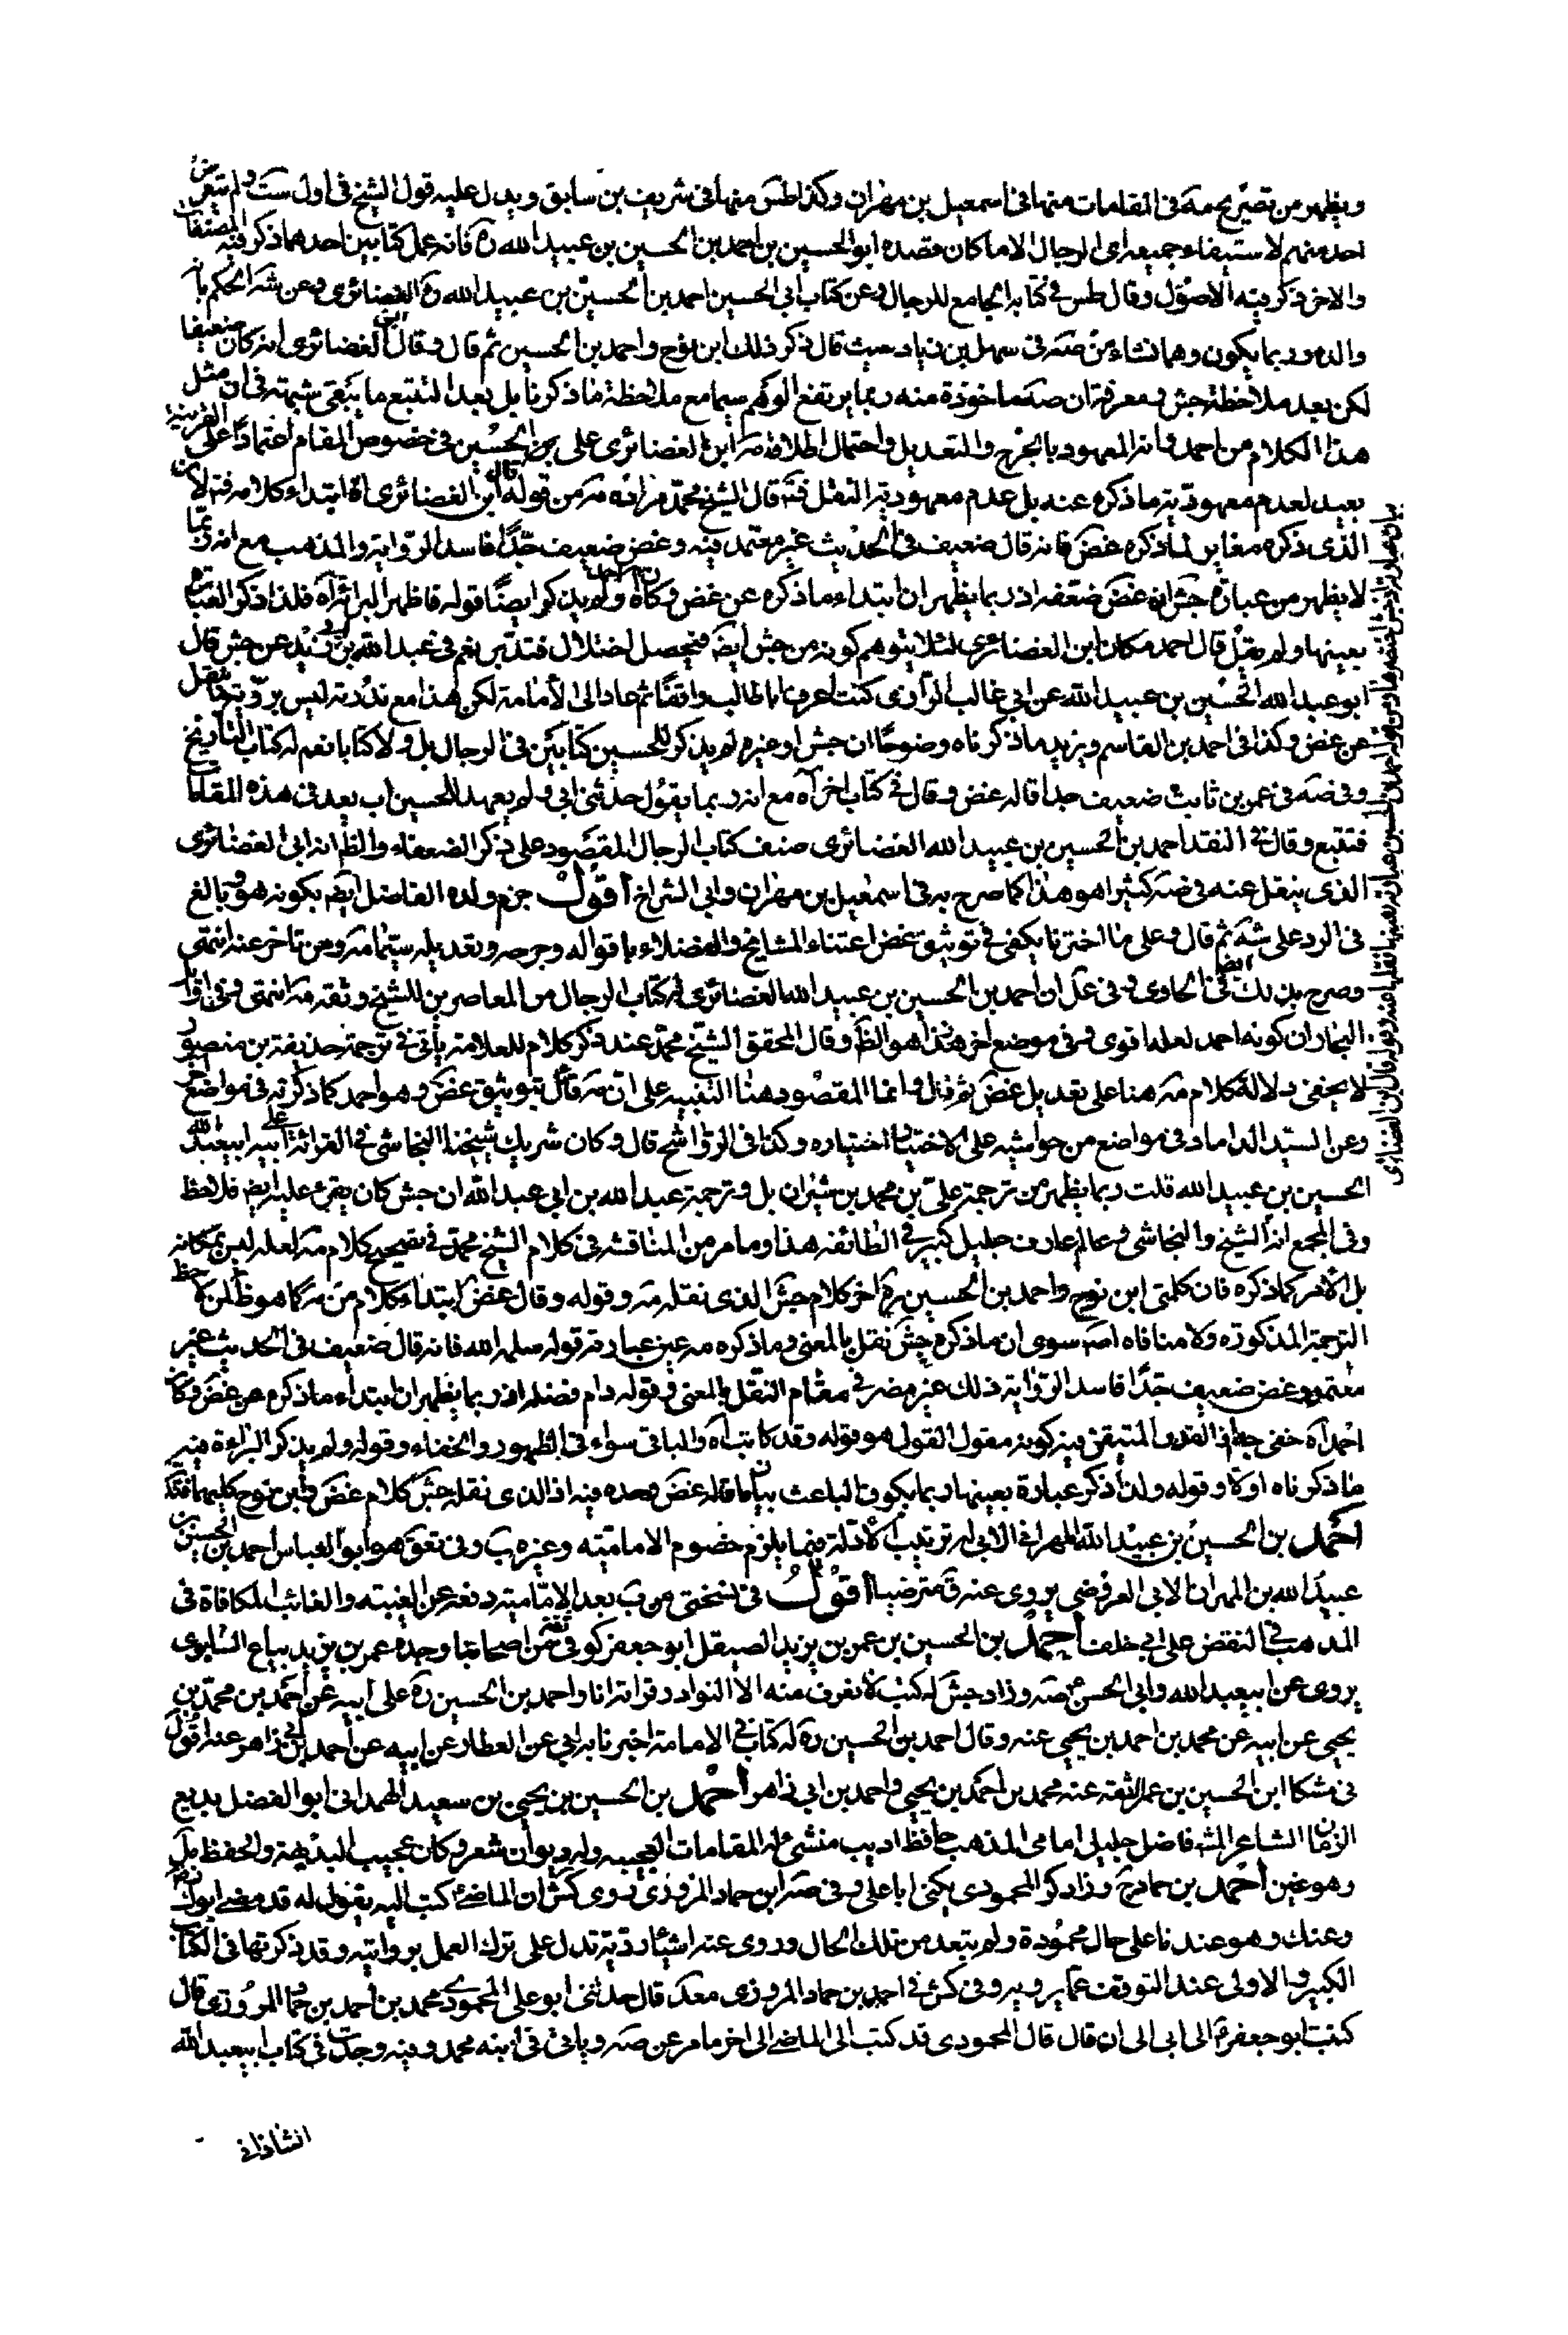 ويظهر من تصريح مه فى المقامات منها فى اسمعيل بن مهران وكذا طس منها فى شريف بن سابق ويدل عليه قول الشيخ فى اول ست ولم يتعرض
احد منهم لاستيفاء جميعه اى الرجال الا ما كان قصده ابو الحسين بن احمد بن الحسين بن عبيد الله ره فانه عمل كتابين احدهما ذكر فيه المصنفات
والاخر ذكر فيه الاصول وقال طس فى كتابه الجامع للرجال وعن كتاب ابى الحسين احمد بن الحسين بن عبيد الله ره الغضائرى وعن شه الحكم بانه
والده وربما يكون وهما نشاء من صه فى سهل بن زياد حيث قال ذكر ذلك ابن نوح واحمد بن الحسين ثم قال وقال ابن الغضائرى انه كان ضعيفا
لكن بعد ملاحظة جش ومعرفة ان صه ماخوذة منه ربما يرتفع الوهم سيما مع ملاحظة ما ذكرنا بل بعد التتبع ما يبقى شبهة فى ان مثل
هذا الكلام من احمد فانه المعهود بالجرح والتعديل واحتمال اطلاق مه ابن الغضائرى على بن الحسين فى خصوص المقام اعتمادا على القرينة
بعيد لعدم معهودية ما ذكره عنه بل عدم معهودية النقل فتم قال الشيخ محمد مراده مه من قوله قال ابن الغضائرى اه ابتداء كلامه فتم لان
الذى ذكره مغاير لما ذكره غض فانه قال ضعيف فى الحديث غير معتمد فيه وغض ضعيف جدا فاسد الرواية والمذهب مع انه ربما
لا يظهر من عبارة جش ان غض ضعفه اذ ربما يظهر ان ابتداء ما ذكره عن غض وكان احمد اه ولم يذكر ايضا قوله فاظهر البرائة اه فلذا ذكر العبارة
بعينها ولم يقل قال احمد مكان ابن الغضائرى لئلا يتوهم كونه من جش ايضا فيحصل اختلال فتدبر نعم فى عبد الله بن ابى زيد عن جش قال
ابو عبد الله الحسين بن عبيد الله عن ابى غالب الزرارى كنت اعرف ابا طالب واقفا ثم عاد الى الامامة لكن هذا مع ندرته ليس برؤيتها نقل
عن غض وكذا فى احمد بن القاسم ويزيد ما ذكرناه وضوحا ان جش او غيره لم يذكر للحسين كتابين فى الرجال بل ولا كتابا نعم له كتاب التاريخ
وفى صه فى عمر بن ثابت ضعيف جدا قاله غض وقال فى كتاب اخر اه مع انه ربما يقول حدثنى ابى ولم يعهد للحسين اب يعد فى هذه المقامات
فتتبع وقال فى النقد احمد بن الحسين بن عبيد الله الغضائرى صنف كتاب الرجال المقصود على ذكر الضعفاء والظ انه ابن الغضائرى
الذى ينقل عنه فى صه كثيرا هو هذا كما صرح به فى اسمعيل بن مهران وابى الشداخ اقول جزم ولده الفاضل ايضا بكونه هو وبالغ
فى الرد على شه ثم قال وعلى ما اخترنا يكفى فى توثيق غض اعتناء المشايخ والفضلاء باقواله وجرحه وتعديله سيما مه ومن تاخر عنه انتهى
وصرح بذلك ايضا فى الحاوى وفى عل ان احمد بن الحسين بن عبيد الله الغضائرى له كتاب الرجال من المعاصرين للشيخ وثقه مه انتهى وفى اول
البحار ان كونه احمد لعله اقوى وفى موضع اخر هذا هو الظ وقال المحقق الشيخ محمد عند ذكر كلام للعلامة ياتى فى ترجمة حذيفة بن منصور
لا يخفى دلالة كلام مه هنا على تعديل غض ثم قال وانما المقصود هنا التنبيه على ان مه قائل بتوثيق غض وهو احمد كما ذكرته فى مواضع
وعن السيد الداماد فى مواضع من حواشيه على الاختيار اختياره وكذا فى الرواشح قال وكان شريك شيخنا النجاشى فى القرائة على ابيه ابيعبد الله
الحسين بن عبيد الله قلت ربما يظهر من ترجمة على بن محمد بن شيران بل وترجمة عبد الله بن ابى عبد الله ان جش كان يقرء عليه ايضا فلاحظ
وفى المجمع انه الشيخ والنجاشى وعالم عارف جليل كبير فى الطائفة هذا وما مر من المناقشة فى كلام الشيخ محمد فى تصحيح كلام مه لعله ليس بمكانه
بل الامر كما ذكره فان كلمتى ابن نوح واحمد بن الحسين ره اخر كلام جش الذى نقله مه وقوله وقال غض ابتداء كلام من مه كما هو ظ لمن لاحظ
الترجمة المذكورة ولا منافاه اصه سوى ان ما ذكره جش نقل بالمعنى وما ذكره مه عين عبارته قوله سلمه الله فانه قال ضعيف فى الحديث غير
معتمد وغض ضعيف جدا فاسد الرواية ذلك غير مضر فى مقام النقل بالمعنى وقوله دام فضله اذ ربما يظهر ان ابتداء ما ذكره عن غض وكان
احمد اه خفى جدا اذ القدر المتيقن فيه كونه مقول القول هو قوله وقد كاتب اه والباقى سواء فى الظهور والخفاء وقوله ولم يذكر البراءة فيه
ما ذكرناه اولا وقوله ولذا ذكر عبارة بعينها ربما يكون الباعث بيان ما قاله غض وحده فيه اذ الذى نقله جش كلام غض وابن نوح كليهما فتدبر
احمد بن الحسين بن عبيد الله المهرانى الابى له ترتيب الادلة فيما يلزم خصوم الامامية وغيره ب وفى تعق هو ابو العباس احمد بن الحسين بن
عبيد الله بن المهران الابى العروضى يروى عنه ق مترضيا اقول فى نسختى من ب بعد الامامية دفعه عن الغيبة والغائب المكافاة فى
المذهب فى النقض على ابى خلف احمد بن الحسين بن عمر بن يزيد الصيقل ابو جعفر كوفى ثقة من اصحابنا وجده عمر بن يزيد بياع السابرى
يروى عن ابيعبد الله وابى الحسن ع صه وزاد جش له كتب لا نعرف منه الا النوادر قراته انا واحمد بن الحسين ره على ابيه عن احمد بن محمد بن
يحيى عن ابيه عن محمد بن احمد بن يحيى عنه وقال احمد بن الحسين ره له كتاب فى الامامة اخبرنا به ابى عن العطار عن ابيه عن احمد بن ابى زاهر عنه اقول
فى مشكا ابن الحسين بن عمر الثقة عنه محمد بن احمد بن يحيى واحمد بن ابى زاهر احمد بن الحسين بن يحيى بن سعيد الهمدانى ابو الفضل بديع
الزمان الشاعر المشه فاضل جليل امامى المذهب حافظ اديب منشئ له المقامات العجيبه وله ديوان شعر وكان عجيب البديهة والحفظ مل
وهو عين احمد بن حماد ج وزاد كر المحمودى يكنى ابا على وفى صه ابن حماد المروزى روى كش ان الماضى ع كتب اليه يقول له قد مضى ابوك رض
وعنك وهو عندنا على حال محمودة ولم يتعد من تلك الحال وروى عنه اشياء ردية تدل على ترك العمل بروايته وقد ذكرتها فى الكتاب
الكبير والاولى عند التوقف عما يرويه وفى كش فى احمد بن حماد المروزى معك قال حدثنى ابو على المحمودى محمد بن احمد بن حماد المروزى قال
كتب ابو جعفر ع الى ابى الى ان قال قال المحمودى قد كتب الى الماضى الى اخر ما مر عن صه وياتى فى ابنه محمد وفيه وجدت فى كتاب ابيعبد الله
الشاذانى